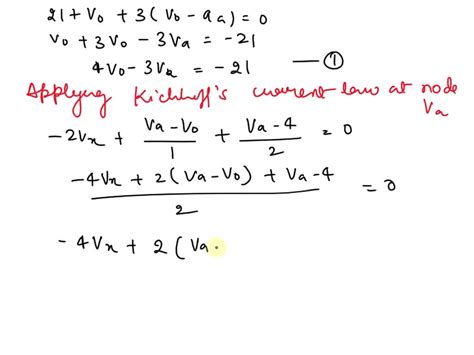 21 + V₀ + 3(V₀ - a_a) = 0
V₀ + 3V₀ - 3Va = -21
4V₀ - 3Vx = -21 —— ①
Applying Kichhoff's current law at node Va
-2Vx + (Va - V₀)/1 + (Va - 4)/2 = 0
(-4Vx + 2(Va - V₀) + Va - 4)/2 = 0
-4Vx + 2(Va